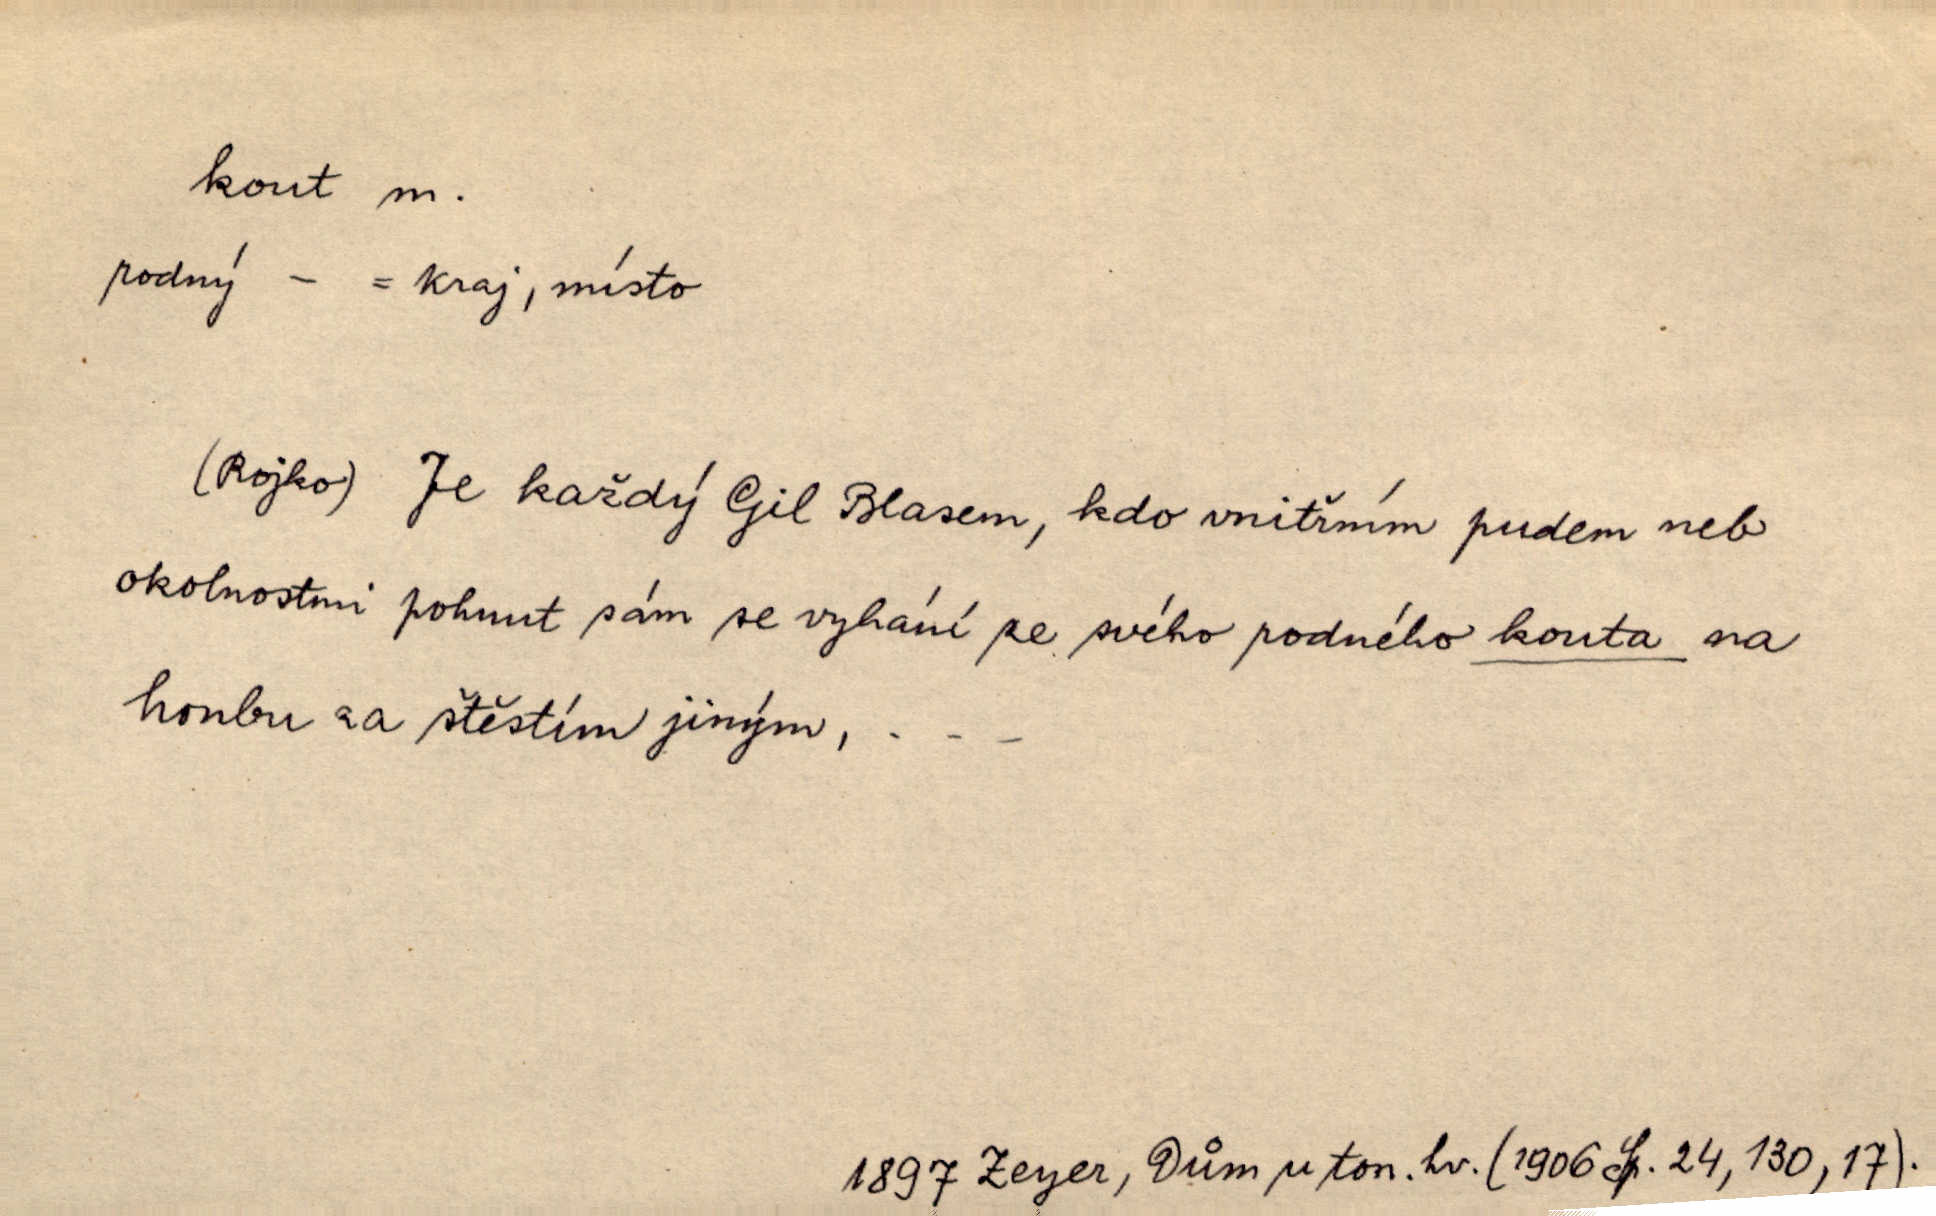 kout m.
rodný – = kraj, místo
(Rojko) Je každý Gil Blasem, kdo vnitřním pudem neb
okolnostmi pohnut sám se vyhání ze svého rodného kouta na
honbu za štěstím jiným, . - -
1897 Zeyer, Dům u ton. hv. (1906 Sp. 24, 130, 17).